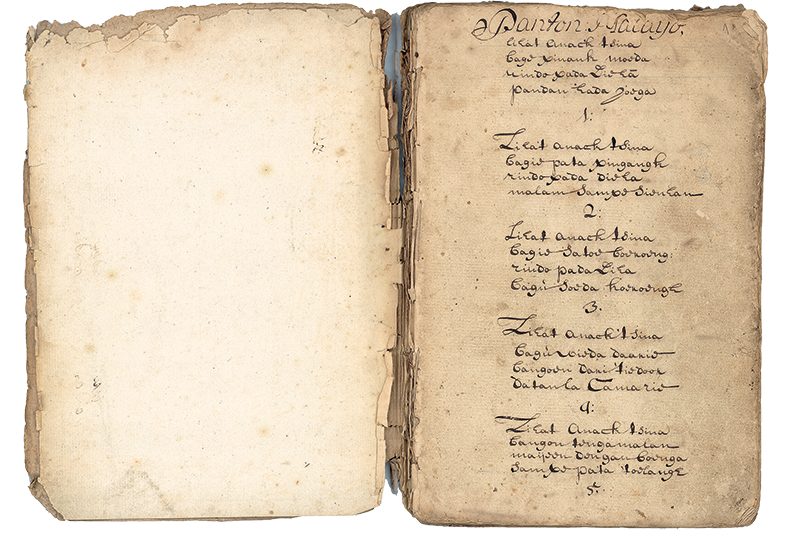 Panton Malaijo,
Lihat anack tsina
bage pinank moeda
rindo pada Diela
pandan tada joega
1:
Lihat anack tsina
bagie pata pingangk
rindo pada diela
malam Sampe Sienlan
2:
Lihat anack tsina
bagie Satoe boeroeng:
rindo pada Lila
bagù Soeda koeroengh
3.
Lihat anack tsina
bagù bieda daarie
bangoen dari tiedoor
datanla Camarie
4:
Lihat Anack tsina
bangon tengamalan
maijeen dengan boenga
Sampe pata toelangh
5.